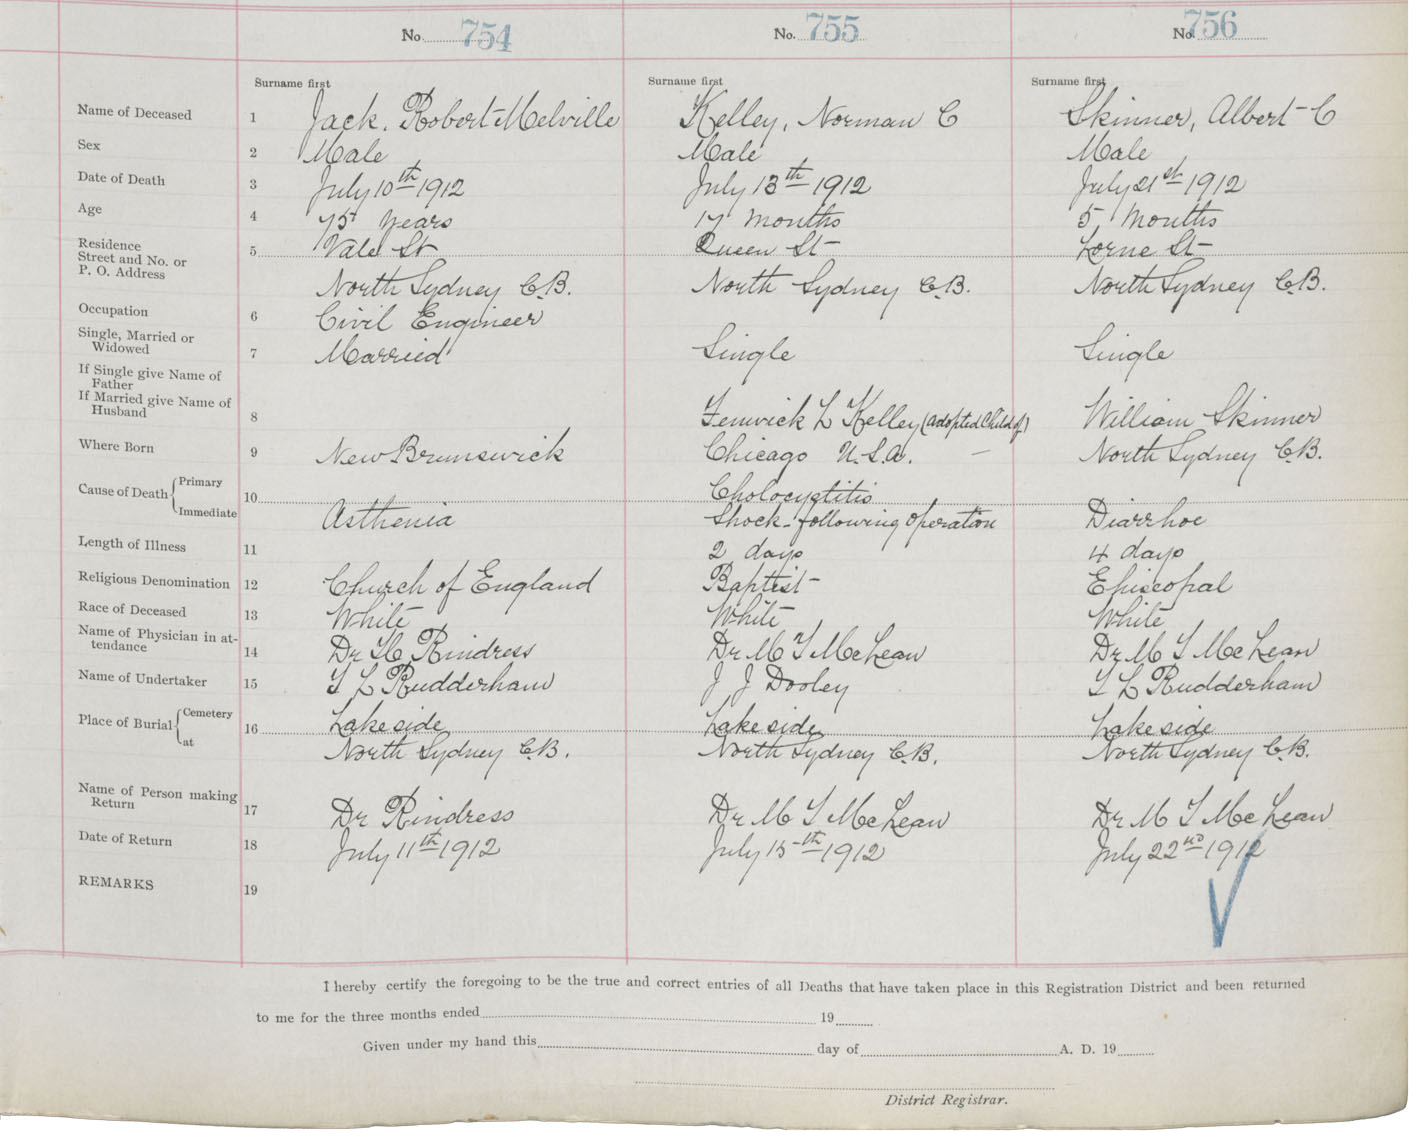 No. 754 No. 755 No. 756
Surname first Surname first Surname first
Name of Deceased 1 Jack, Robert Melville Kelley, Norman C Skinner, Albert C
Sex 2 Male Male Male
Date of Death 3 July 10th 1912 July 13th 1912 July 21st 1912
Age 4 75 years 17 months 5 months
Residence
Street and No. or 5 Vale St Queen St Lorne St
P. O. Address North Sydney C.B. North Sydney C.B. North Sydney C.B.
Occupation 6 Civil Engineer
Single, Married or
Widowed 7 Married Single Single
If Single give Name of
Father
If Married give Name of
Husband 8 Fenwick L Kelley (adopted Child of) William Skinner
Where Born 9 New Brunswick Chicago U.S.A. — North Sydney C.B.
Cause of Death { Primary 10 Cholocystitis
Immediate Asthenia Shock-following operation Diarrhoe
Length of Illness 11 2 days 4 days
Religious Denomination 12 Church of England Baptist Episcopal
Race of Deceased 13 White White White
Name of Physician in at-
tendance 14 Dr Rindress Dr M T McLean Dr M T McLean
Name of Undertaker 15 T L Rudderham J J Dooley T L Rudderham
Place of Burial { Cemetery 16 Lakeside Lakeside Lakeside
at North Sydney C.B. North Sydney C.B. North Sydney C.B.
Name of Person making
Return 17 Dr Rindress Dr M T McLean Dr M T McLean
Date of Return 18 July 11th 1912 July 15th 1912 July 22nd 1912
REMARKS 19
I hereby certify the foregoing to be the true and correct entries of all Deaths that have taken place in this Registration District and been returned
to me for the three months ended 19
Given under my hand this day of A. D. 19
District Registrar.